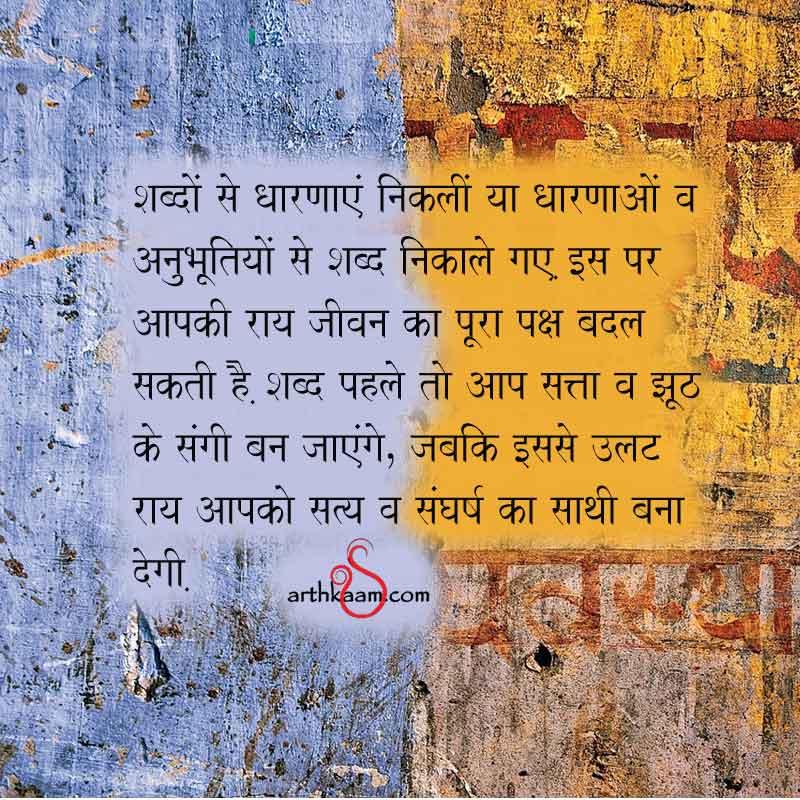 शब्दों से धारणाएं निकलीं या धारणाओं व
अनुभूतियों से शब्द निकाले गए. इस पर
आपकी राय जीवन का पूरा पक्ष बदल
सकती है. शब्द पहले तो आप सत्ता व झूठ
के संगी बन जाएंगे, जबकि इससे उलट
राय आपको सत्य व संघर्ष का साथी बना
देगी.
arthkaam.com